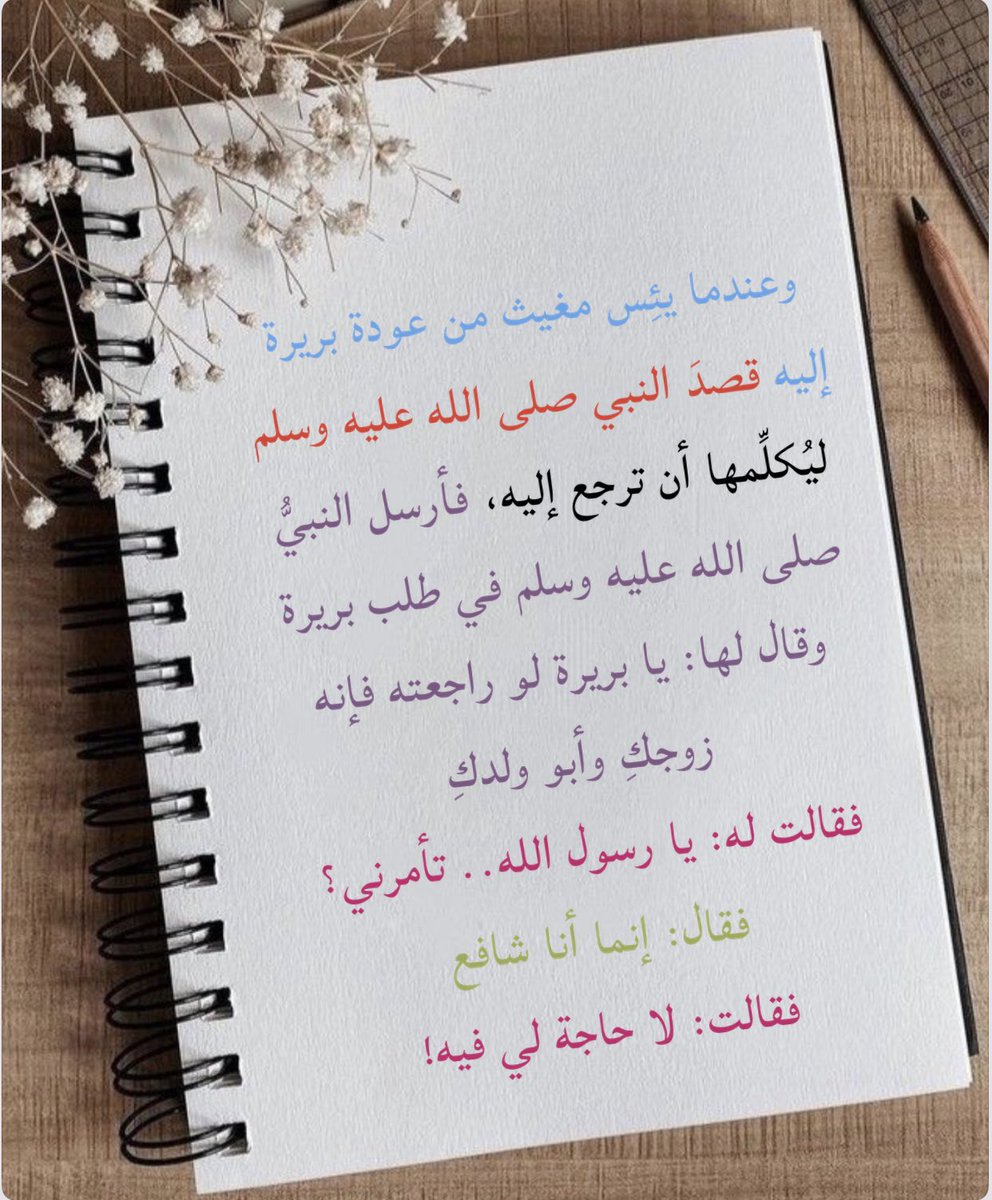 وعندما يئِس مغيث من عودة بريرة
إليه قصدَ النبي صلى الله عليه وسلم
ليُكلِّمها أن ترجع إليه، فأرسل النبيُّ
صلى الله عليه وسلم في طلب بريرة
وقال لها: يا بريرة لو راجعته فإنه
زوجكِ وأبو ولدكِ
فقالت له: يا رسول الله.. تأمرني؟
فقال: إنما أنا شافع
فقالت: لا حاجة لي فيه!